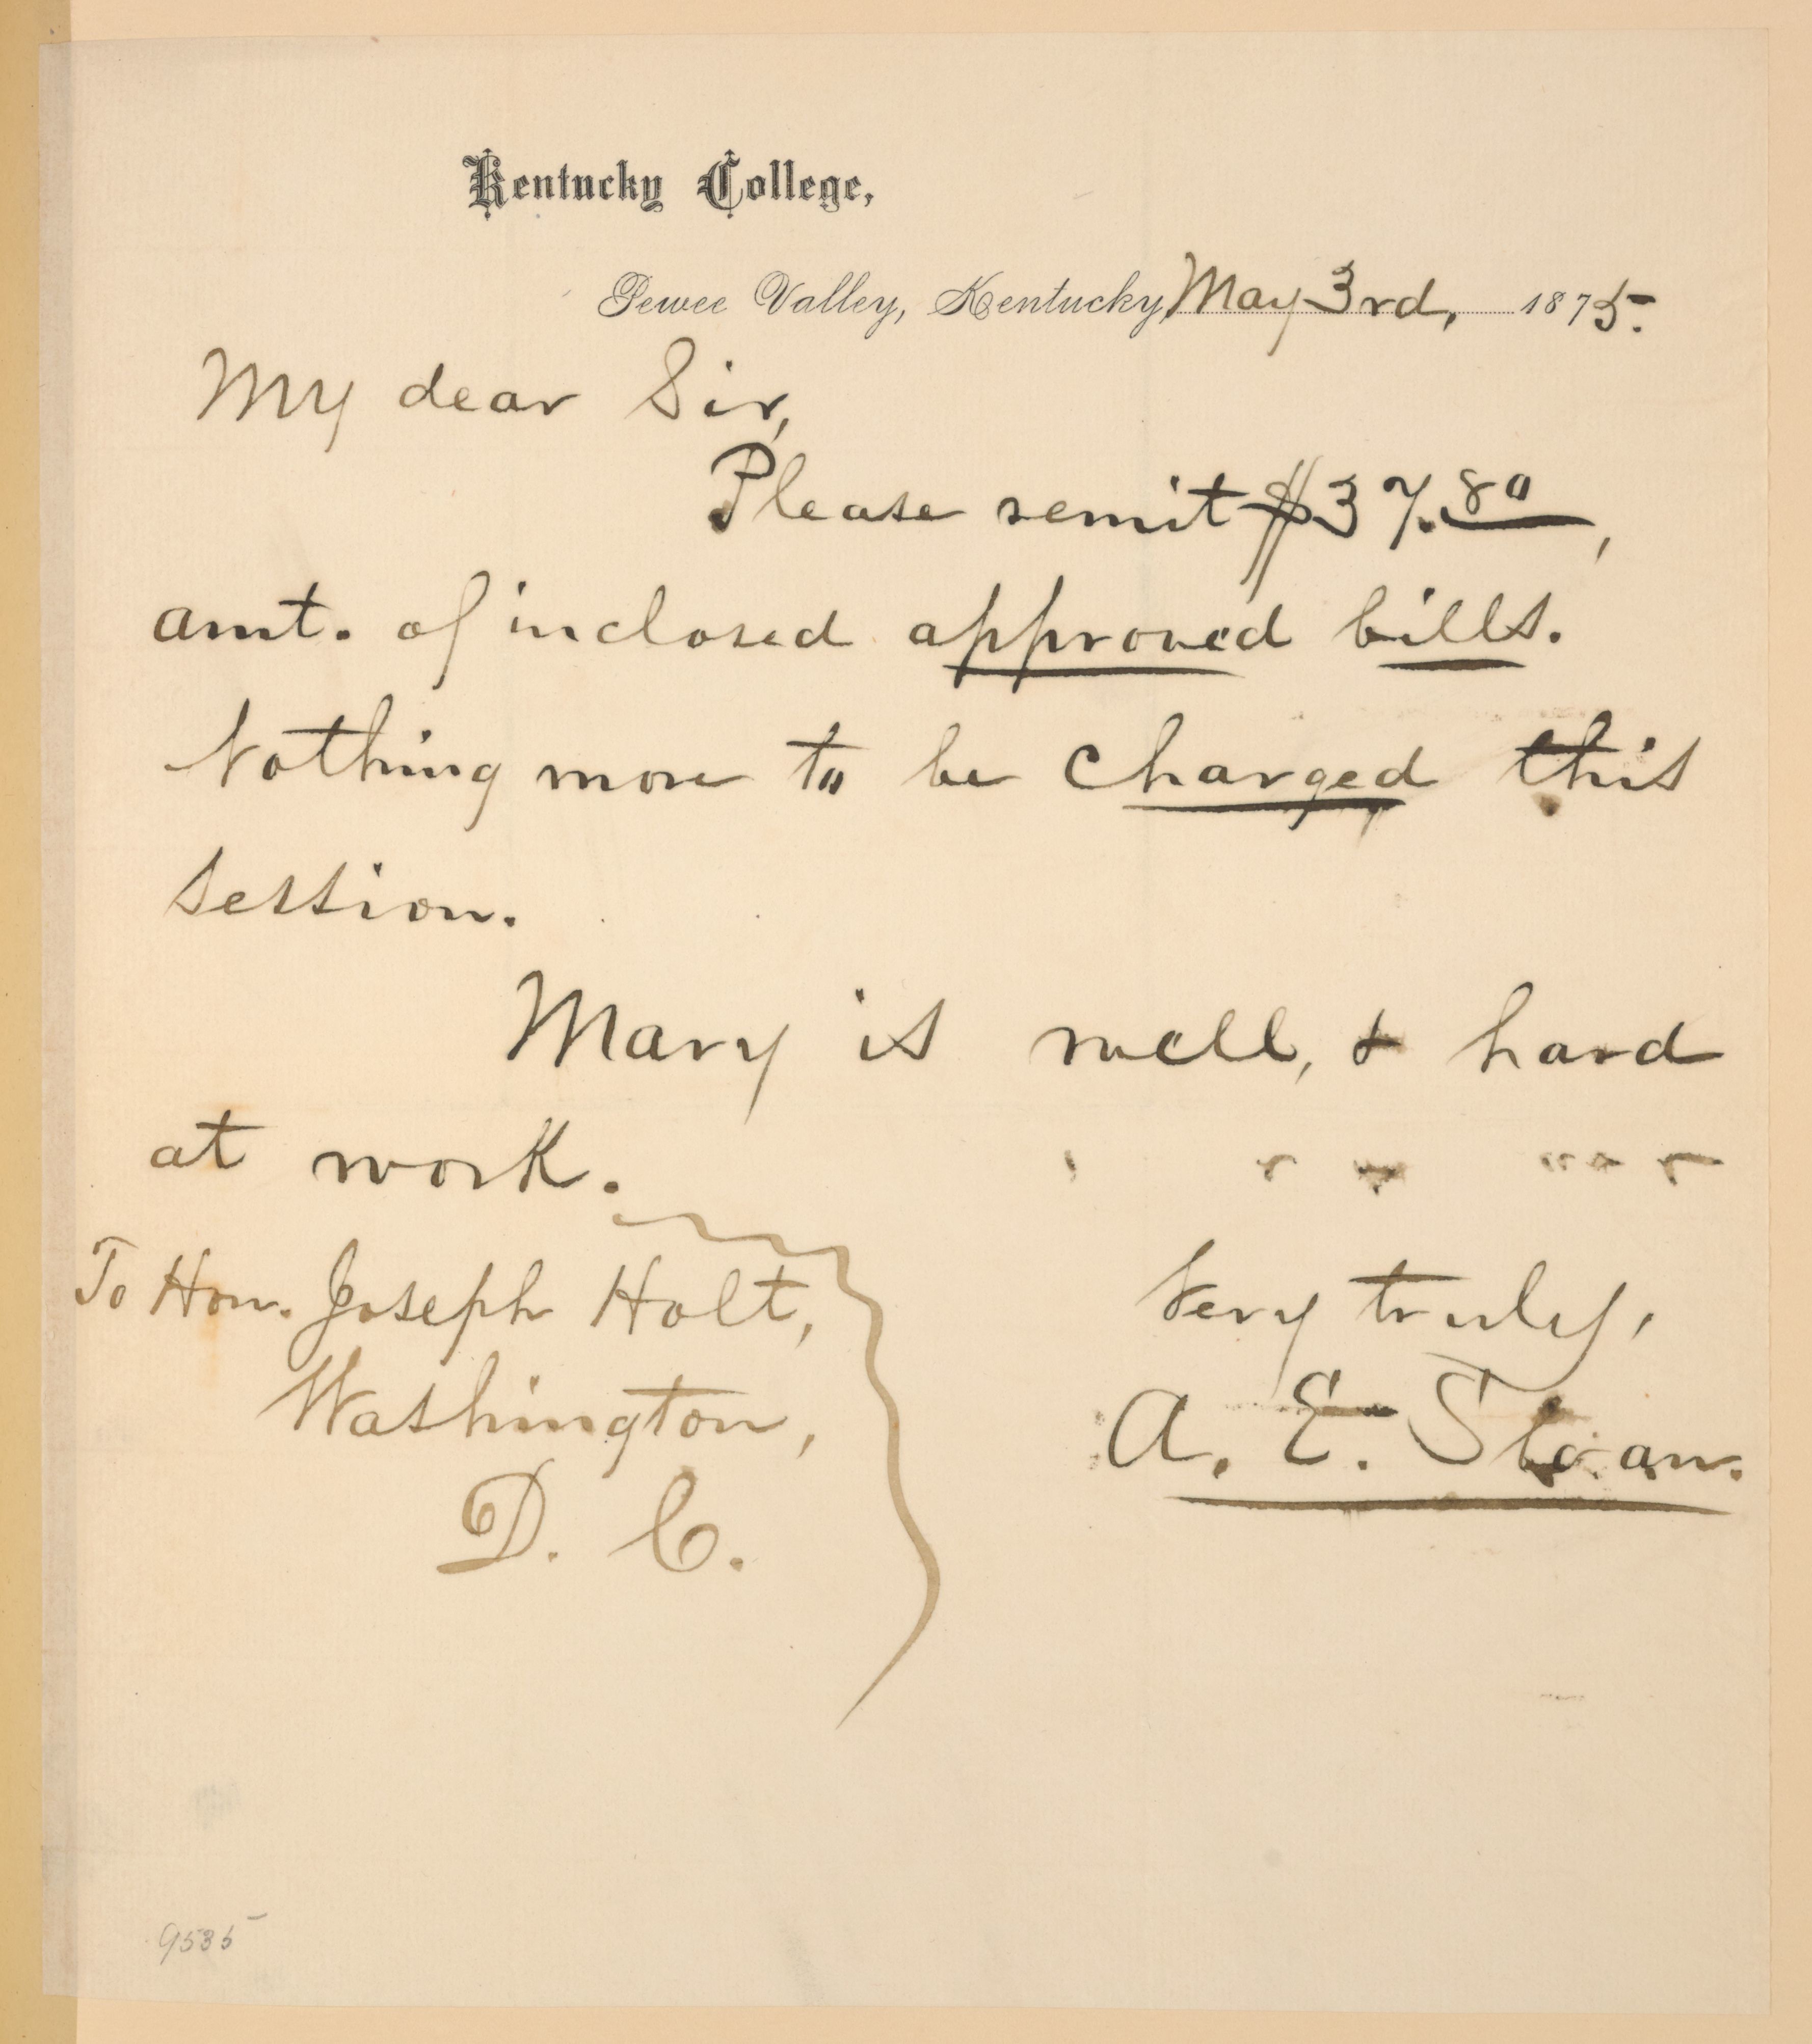 Kentucky College,
Pewee Valley, Kentucky, May 3rd, 1875.
My dear Sir,
Please remit $37.80,
amt. of inclosed approved bills.
Nothing more to be charged this
session.
Mary is well, & hard
at work.
To Hon. Joseph Holt,
Washington,
D. C.
Very truly,
A. E. Sloan.
9535